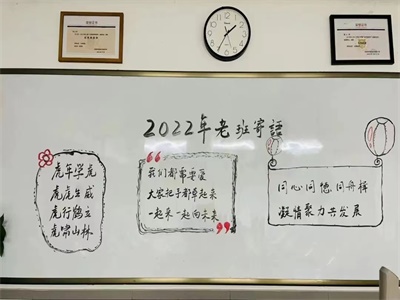 2022年老班寄語
虎年学虎
虎虎生威
虎行鹤立
虎啸山林
我们都需要爱
大家把手都牵起来
一起来 一起向未来
同心同德同舟楫
凝情聚力共发展